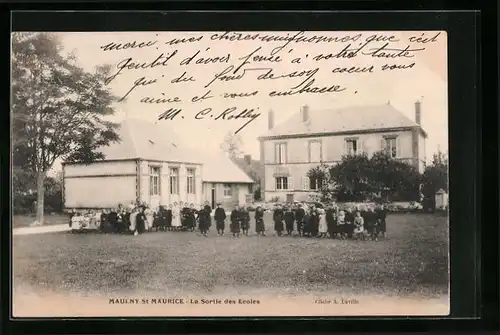 merci, mes chères mignonnes, que c'est
gentil d'avoir pensé à votre tante
qui du fond de son coeur vous
aime et vous embrasse.
M. C. Robly
MAULNY St MAURICE - La Sortie des Ecoles
Cliché A.